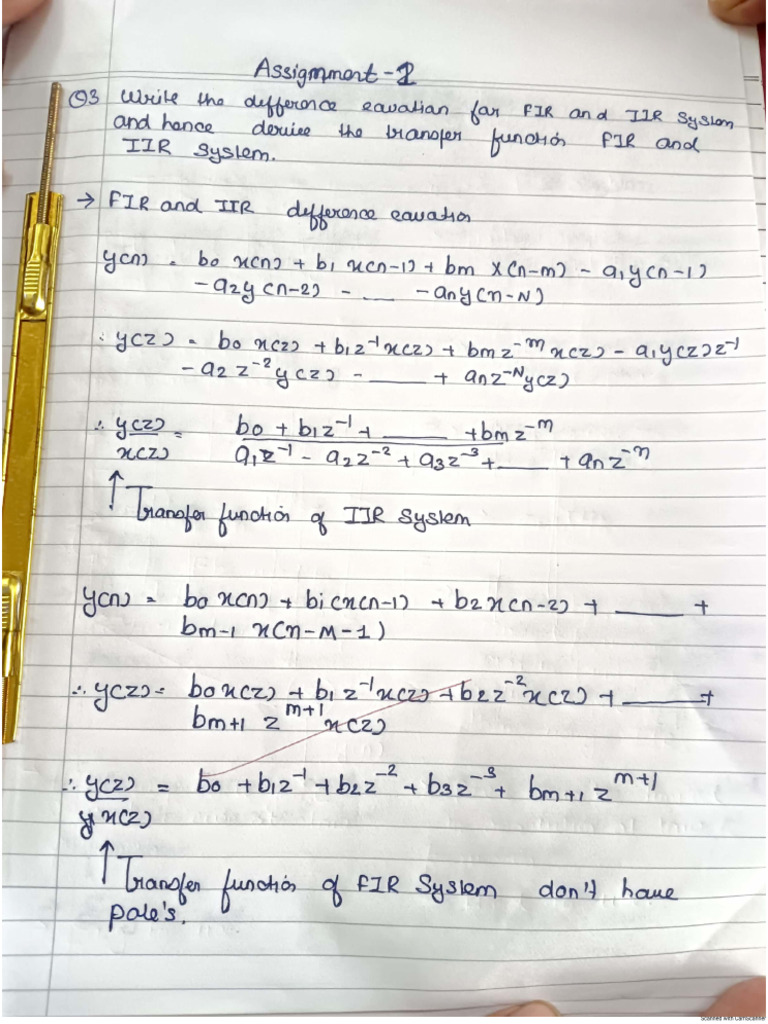 Assignment-1
Q3 Write the difference equation for FIR and IIR System
and hence derive the transfer function FIR and
IIR System.
→ FIR and IIR difference equation
y(n) = b0 x(n) + b1 x(n-1) + bm x(n-m) - a1y(n-1)
-a2y(n-2) - __ -any(n-N)
∴ y(z) = b0 x(z) + b1z⁻¹x(z) + bmz⁻ᵐx(z) - a1y(z)z⁻¹
-a2 z⁻²y(z) - ___ + anz⁻ᴺy(z)
∴ y(z) = b0 + b1z⁻¹ + ___ +bmz⁻ᵐ
x(z) a1z⁻¹ - a2z⁻² + a3z⁻³ + __ + anz⁻ⁿ
↑ Transfer function of IIR System
y(n) = b0 x(n) + b1(x(n-1) + b2x(n-2) + ___ +
bm-1 x(n-M-1)
∴ y(z) = b0x(z) + b1z⁻¹x(z) + b2z⁻²x(z) + ___ +
bm+1 zᵐ⁺¹x(z)
∴ y(z) = b0 + b1z⁻¹ + b2z⁻² + b3z⁻³ + bm+1 zᵐ⁺¹
x(z)
↑ Transfer function of FIR System don't have
pole's.
Scanned with CamScanner